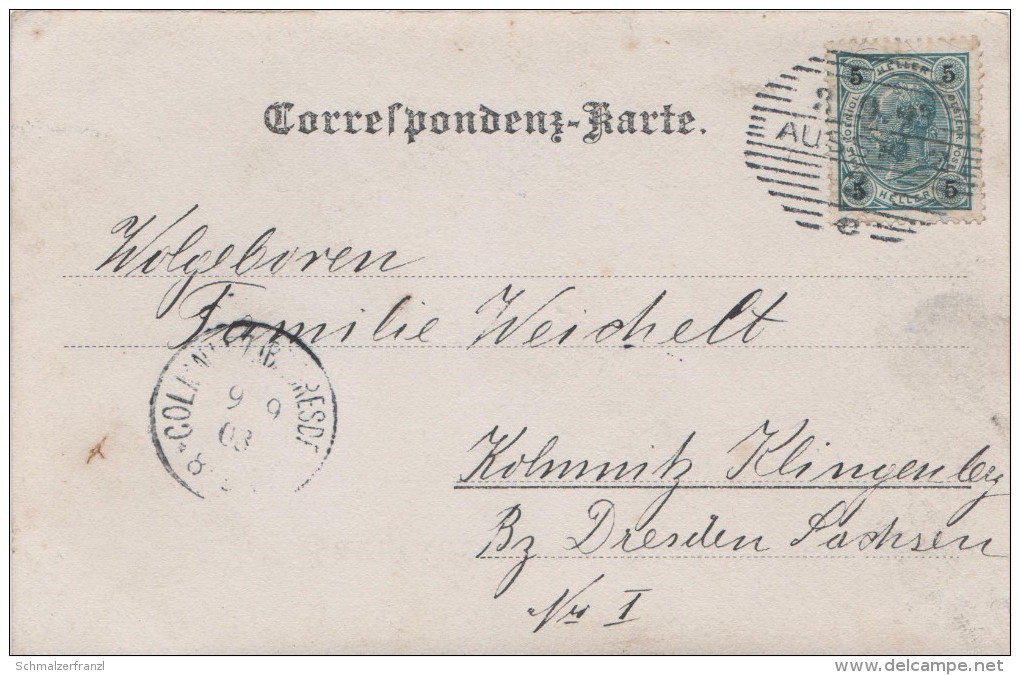 Correspondenz-Karte.
5 HELLER 5
AUS
5 HELLER 5
e
Wolgeboren
Familie Weichelt
9 9
03
Kolmnitz Klingenberg
Bz Dresden Sachsen
No I
Schmalzerfranzl
delcampe.net